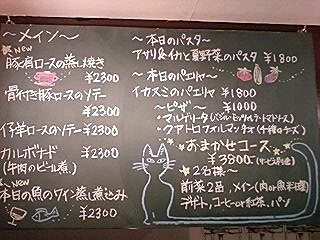 〜メイン〜
New
豚肩ロースの蒸し焼き
¥2300
骨付き豚ロースのソテー
¥2300
仔羊ロースのソテー
¥2300
カルボナード
(牛肉のビール煮)
¥2300
New
本日の魚のワイン蒸し煮込み
¥2300
〜本日のパスタ〜
アサリ&イカと夏野菜のパスタ ¥1800
〜本日のパエヤ〜
イカスミのパエリヤ ¥1800
〜ピザ〜 ¥1000
・マルゲリータ
・クアトロフォルマッジオ(4種のチーズ)
おまかせコース
¥3800(サービス料別)
〜2名様〜
前菜2品、メイン(肉or魚料理)
デザート、コーヒーor紅茶、パン